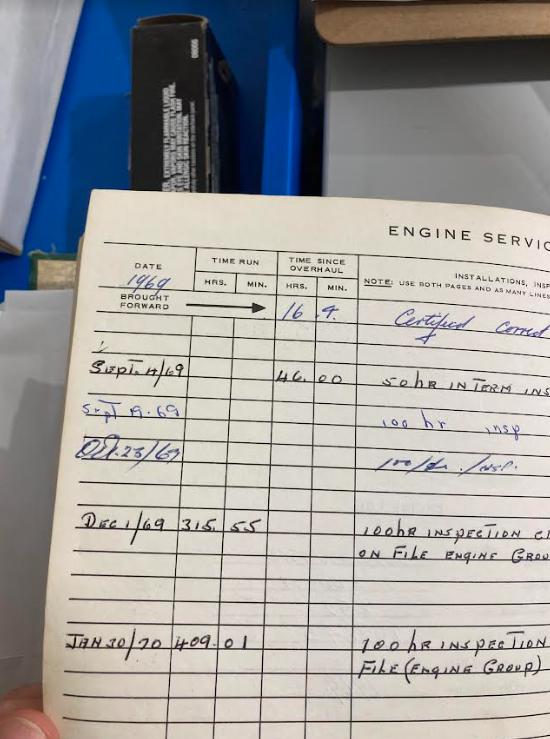 00066
ENGINE SERVIC
DATE
TIME RUN
TIME SINCE OVERHAUL
INSTALLATIONS, INSP
HRS. MIN. HRS. MIN. NOTE: USE BOTH PAGES AND AS MANY LINES
1969
BROUGHT FORWARD
16 .9. Certified Correct
Sept. 11/69 46. 00 50 hr INTERM INS
Sept 19. 69 100 hr insp
Oct. 23/69 100/hr. /insp.
DEC 1/69 315. 55 100hr INSPECTION
ON FILE ENGINE GROU
JAN 30/70 409. 01 100 hr INSPECTION
FILE (ENGINE GROUP)